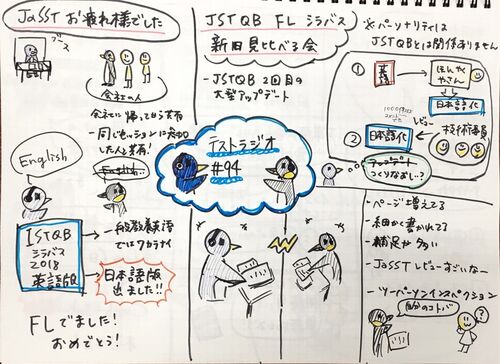 JaSST お疲れ様でした
ブース
会社の人
会社に帰ってから共有
-同じセッションに参加
した人と共有!
English
ISTQB
シラバス
2018
英語版
-一般教養英語
ではワカラナイ
日本語版
出ました!!
FLでました!
おめでとう!
JSTQB FL シラバス
新旧見比べる会
-JSTQB 2回目の
大型アップデート
テストラジオ
#94
※パーソナリティは
JSTQBとは関係ありません
①
英語
ほんやく
やさん
日本語化
②
日本語化
レビュー
技術委員
アップデート
つくりなおし?
-ページ増えてる
-細かく書かれてる
-補足が多い
-JaSSTレビューすごいなー
-ツーパーソンインスペクション
自分のコトバ
?